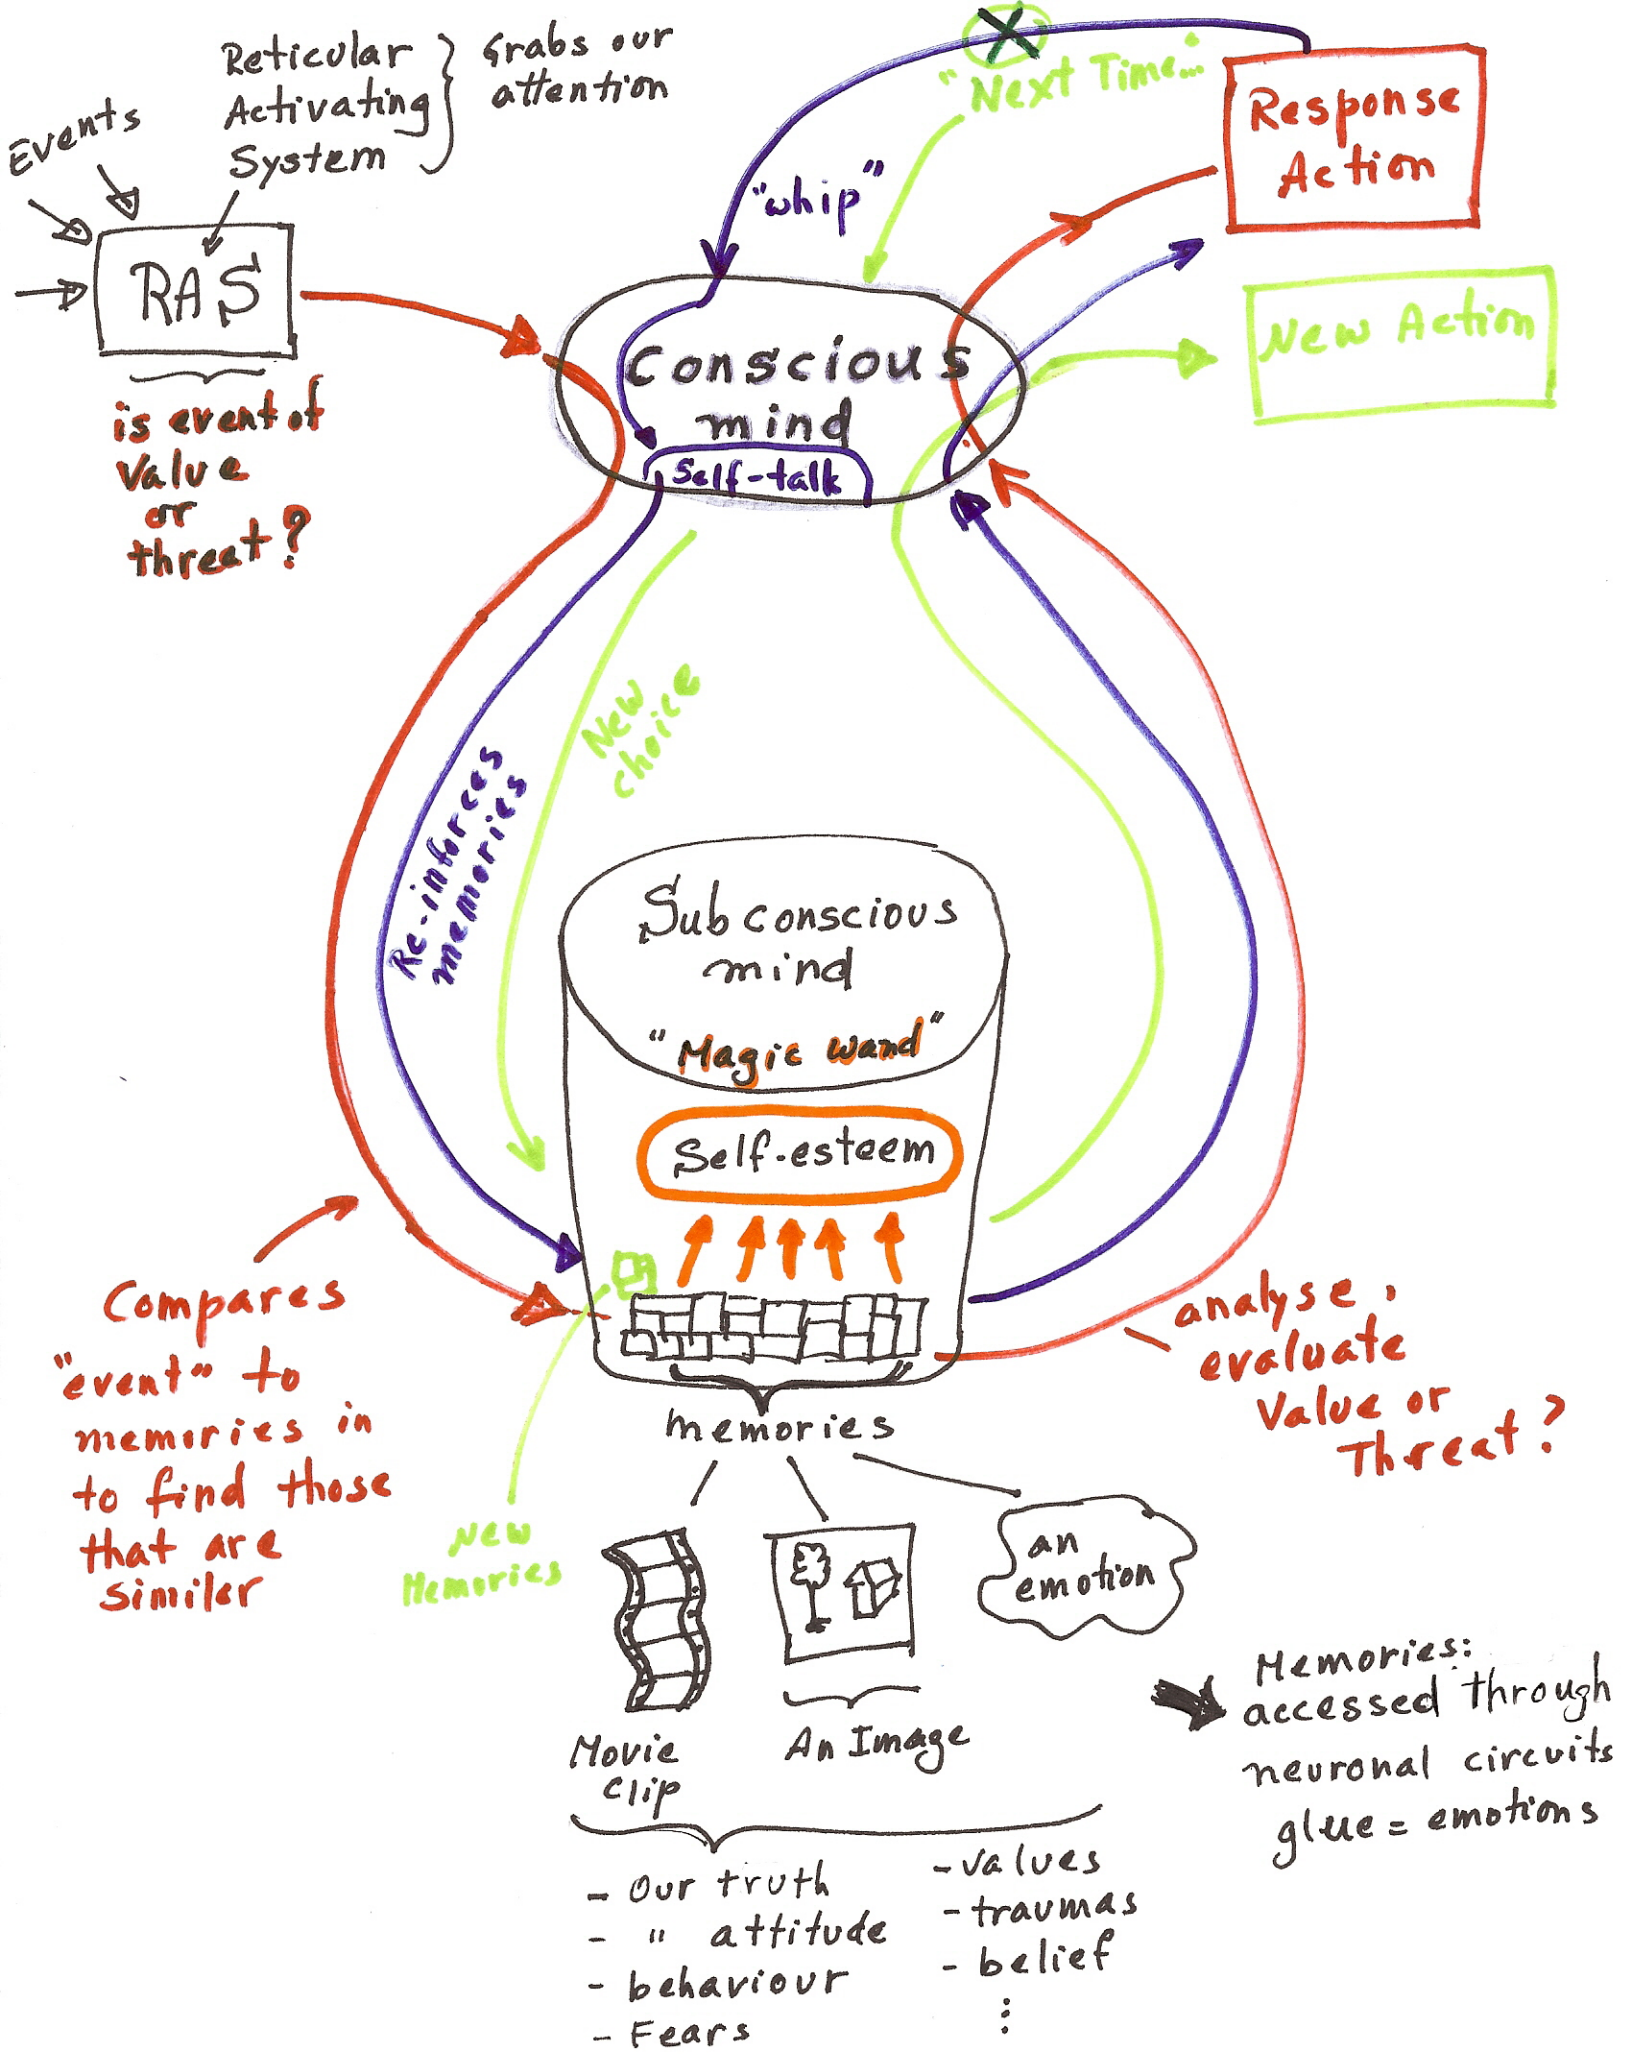 Reticular
Activating
System
Grabs our
attention
Events
RAS
is event of
Value
or
threat?
"Next Time..."
"whip"
Response
Action
New Action
Conscious
mind
Self-talk
New
choice
Re-inforces
memories
Subconscious
mind
"Magic Wand"
Self-esteem
Compares
"event" to
memories in
to find those
that are
similar
analyse,
evaluate
Value or
Threat?
memories
New
Memories
an
emotion
Movie
clip
An Image
Memories:
accessed through
neuronal circuits
glue = emotions
- Our truth
- " attitude
- behaviour
- Fears
- values
- traumas
- belief
⋮